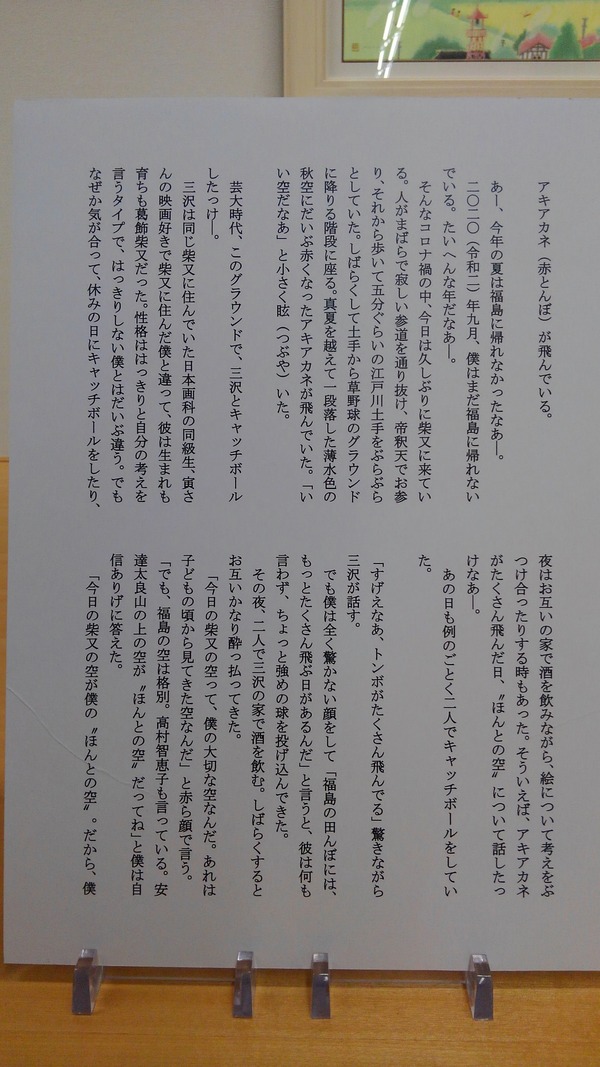 アキアカネ（赤とんぼ）が飛んでいる。
あー、今年の夏は福島に帰れなかったなあ―。
二〇二〇（令和二）年九月、僕はまだ福島に帰れない
でいる。たいへんな年だなあ―。
そんなコロナ禍の中、今日は久しぶりに柴又に来てい
る。人がまばらで寂しい参道を通り抜け、帝釈天でお参
り、それから歩いて五分ぐらいの江戸川土手をぶらぶら
としていた。しばらくして土手から草野球のグラウンド
に降りる階段に座る。真夏を越えて一段落した薄水色の
秋空にだいぶ赤くなったアキアカネが飛んでいた。「い
い空だなあ」と小さく呟（つぶや）いた。
芸大時代、このグラウンドで、三沢とキャッチボール
したっけ―。
三沢は同じ柴又に住んでいた日本画科の同級生、寅さ
んの映画好きで柴又に住んだ僕と違って、彼は生まれも
育ちも葛飾柴又だった。性格ははっきりと自分の考えを
言うタイプで、はっきりしない僕とはだいぶ違う。でも
なぜか気が合って、休みの日にキャッチボールをしたり、
夜はお互いの家で酒を飲みながら、絵について考えをぶ
つけ合ったりする時もあった。そういえば、アキアカネ
がたくさん飛んだ日、〝ほんとの空〟について話したっ
けなあ―。
あの日も例のごとく二人でキャッチボールをしてい
た。
「すげえなあ、トンボがたくさん飛んでる」驚きながら
三沢が話す。
でも僕は全く驚かない顔をして「福島の田んぼには、
もっとたくさん飛ぶ日があるんだ」と言うと、彼は何も
言わず、ちょっと強めの球を投げ込んできた。
その夜、二人で三沢の家で酒を飲む。しばらくすると
お互いかなり酔っ払ってきた。
「今日の柴又の空って、僕の大切な空なんだ。あれは
子どもの頃から見てきた空なんだ」と赤ら顔で言う。
「でも、福島の空は格別。高村智恵子も言っている。安
達太良山の上の空が〝ほんとの空〟だってね」と僕は自
信ありげに答えた。
「今日の柴又の空が僕の〝ほんとの空〟。だから、僕